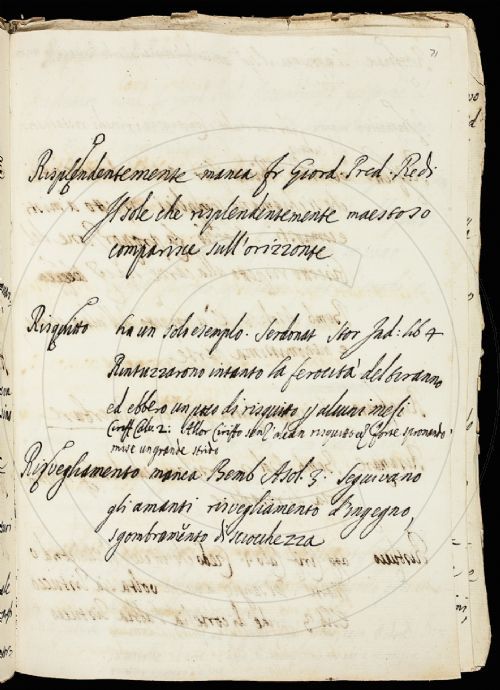 71
Risplendentemente manca fr Giord. Pred. Redi
Il sole che risplendentemente maestoso
comparisce sull'orizzonte
Risquitto ha un solo esemplo. Serdonat Stor Ind: lib 4
Rintuzzarono intanto la ferocità del tiranno
ed ebbero un poco di risquitto p alcuni mesi
Ciriff Calv. 2: Allor Ciriffo senz' alcun risquitto forte spronando
mise un grande strido
Risvegliamento manca Bemb Asol. 3. Seguivano
gli amanti risvegliamento d'Ingegno,
sgombramento di sciocchezza